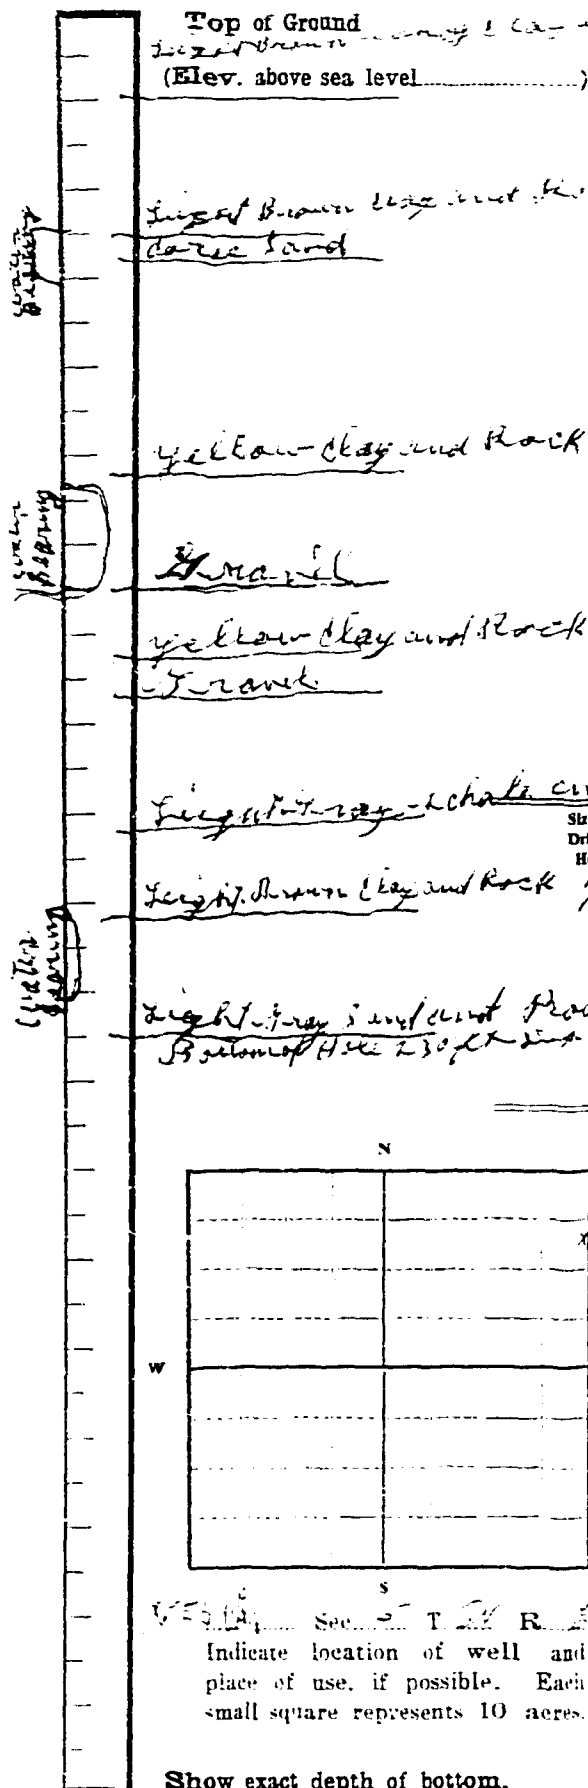 Top of Ground
Light Brown Clay
(Elev. above sea level....................)
Light Brown Clay and
Sand
Water Bearing
Yellow Clay and Rock
Water Bearing
Gravel
Yellow Clay and Rock
Gravel
Light Gray
Siz
Dri
H
Light Brown Clay and Rock
Water Bearing
Light Gray Sand and
Bottom of Hole 230 ft
N
x
W
S
Sec. T. R.
Indicate location of well and
place of use, if possible. Each
small square represents 10 acres.
Show exact depth of bottom.